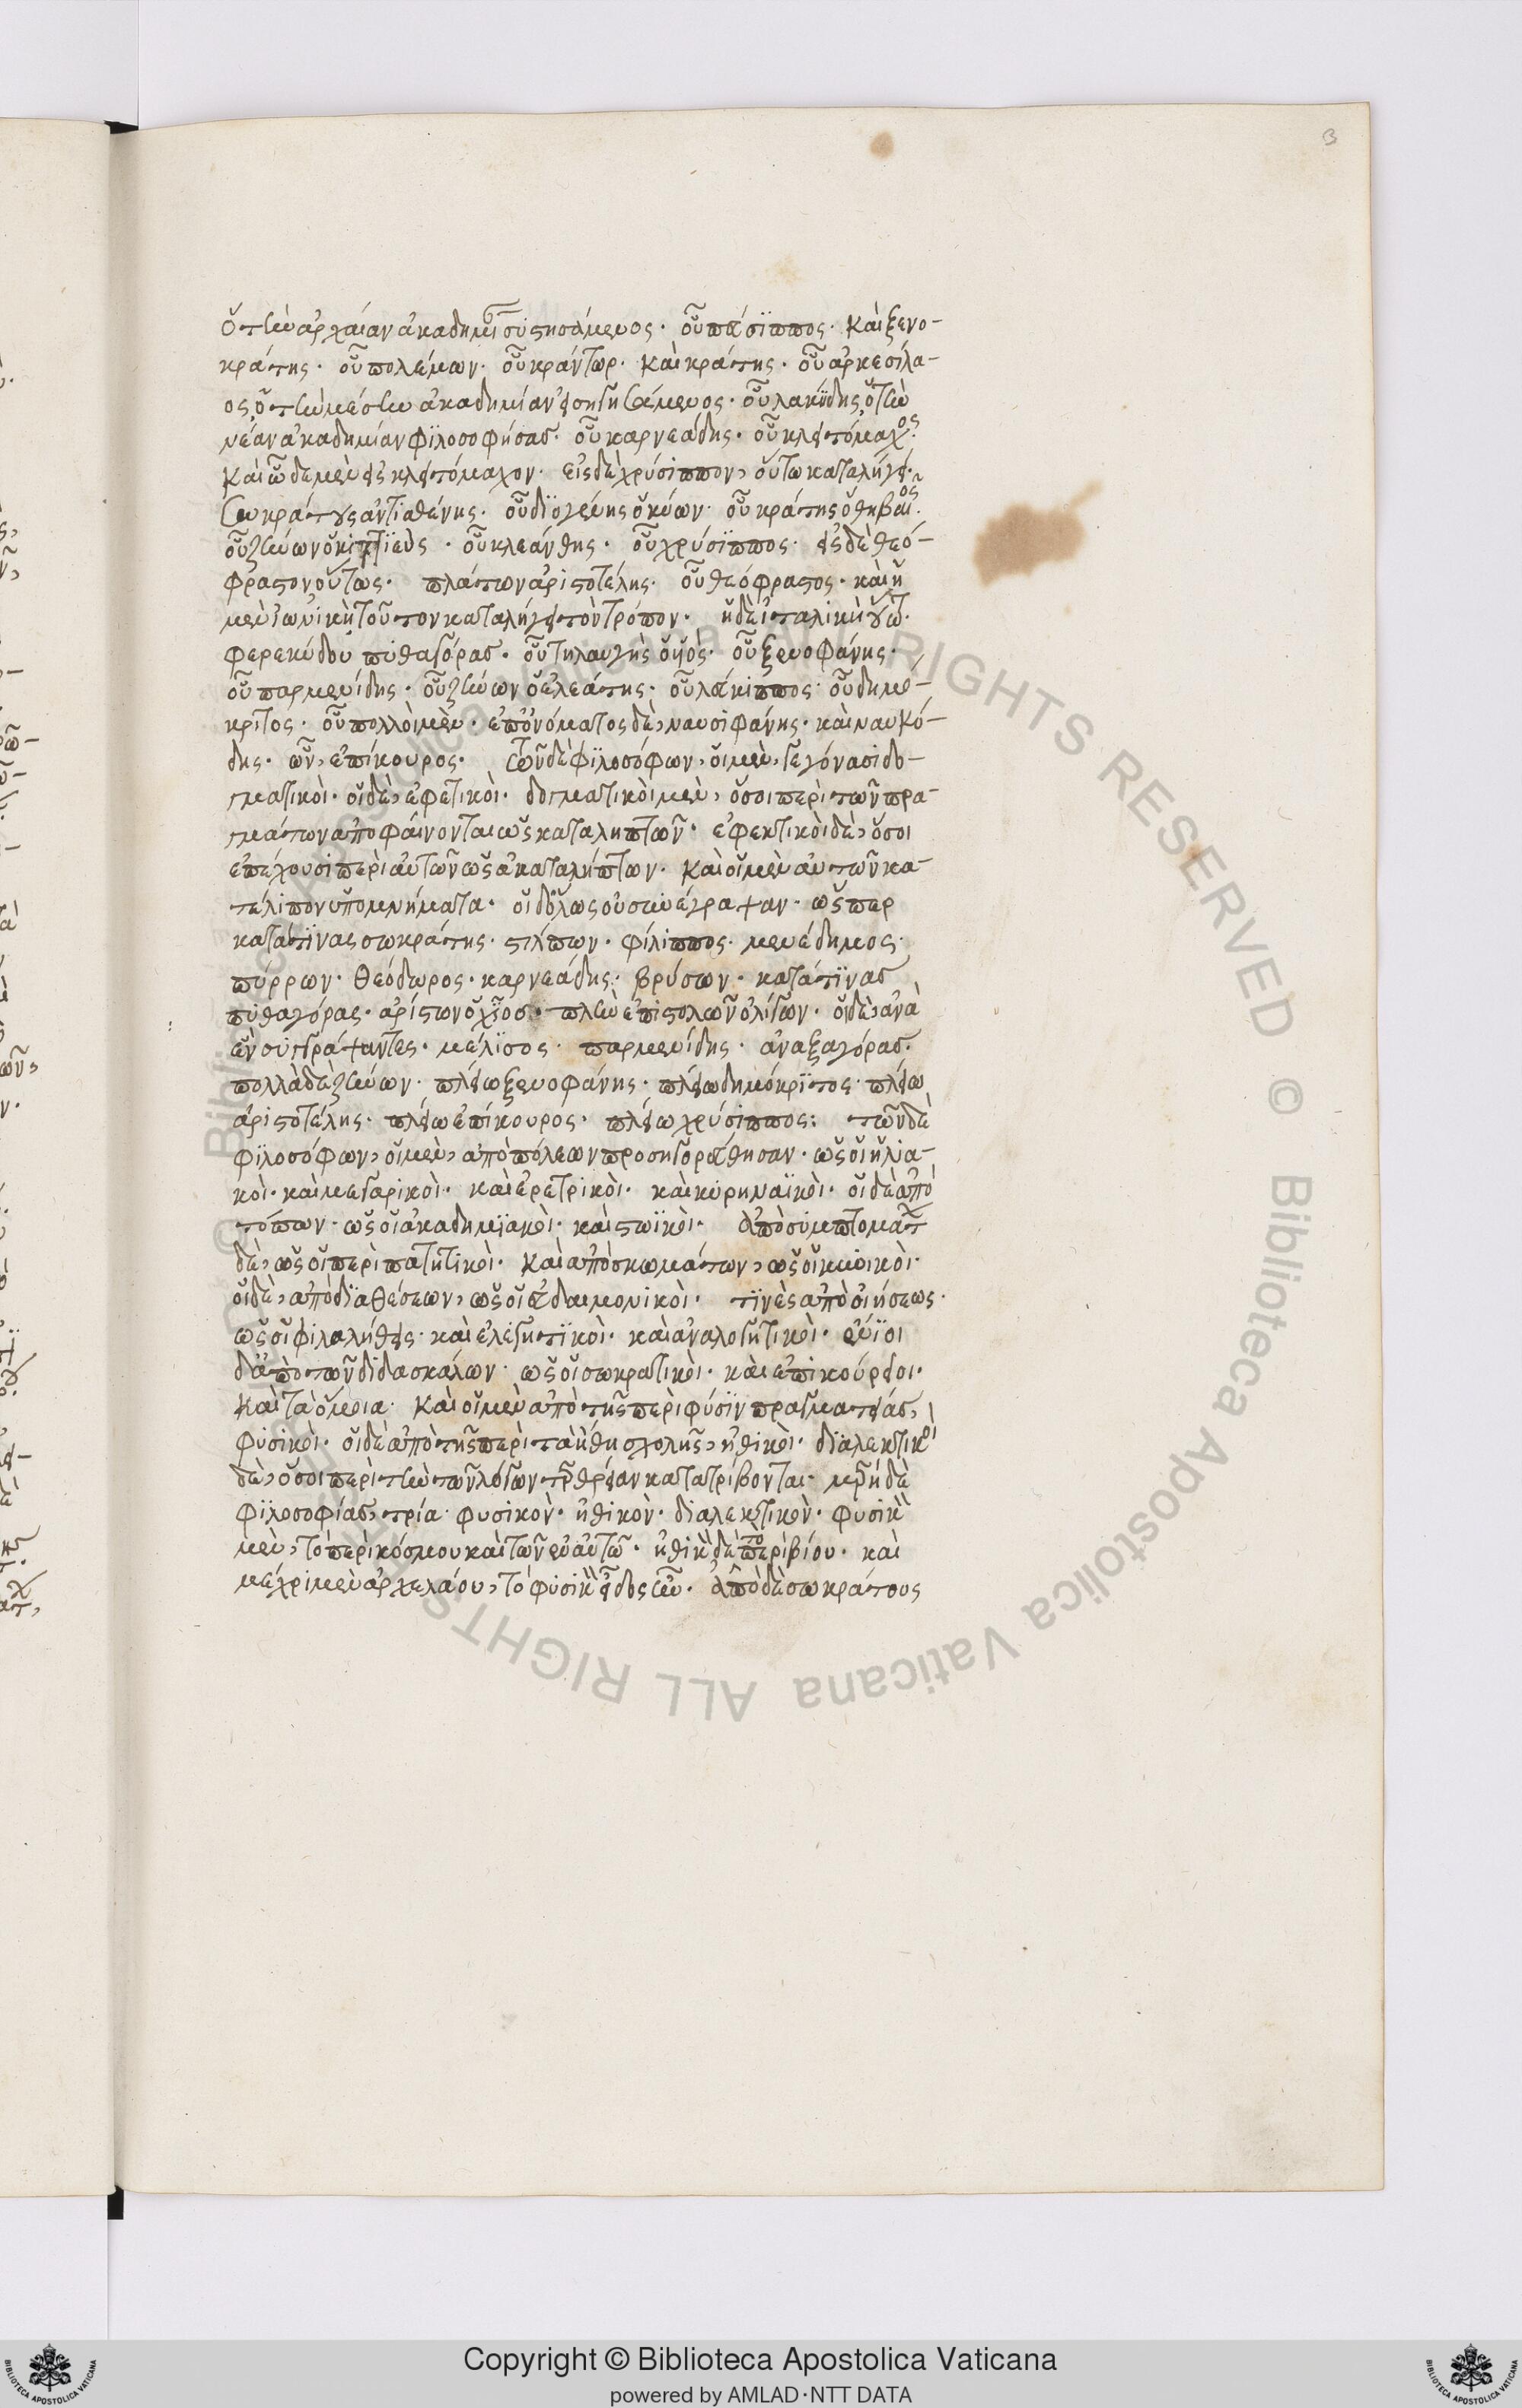 3
ὁ τὴν ἀρχαίαν ἀκαδημίαν συστησάμενος· οὗ σπεύσιππος· καὶ ξενο-
κράτης· οὗ πολέμων· οὗ κράντωρ· καὶ κράτης· οὗ ἀρκεσίλα-
ος, ὁ τὴν μέσην ἀκαδημίαν εἰσηγησάμενος· οὗ λακύδης, ὁ τὴν
νέαν ἀκαδημίαν φιλοσοφήσας· οὗ καρνεάδης· οὗ κλειτόμαχος·
καὶ ὧδε μὲν εἰς κλειτόμαχον· εἰς δὲ χρύσιππον, οὕτω καταλήγει·
σωκράτους ἀντισθένης· οὗ διογένης ὁ κύων· οὗ κράτης ὁ θηβαῖος·
οὗ ζήνων ὁ κιττιεὺς· οὗ κλεάνθης· οὗ χρύσιππος· εἰς δὲ θεό-
φραστον οὕτως· πλάτων ἀριστοτέλης· οὗ θεόφραστος· καὶ ἡ
μὲν ἰωνικὴ τοῦτον καταλήγει τὸν τρόπον· ἡ δὲ ἰταλικὴ οὕτω·
φερεκύδου πυθαγόρας· οὗ τηλαυγὴς ὁ υἱὸς· οὗ ξενοφάνης·
οὗ παρμενίδης· οὗ ζήνων ὁ ἐλεάτης· οὗ λεύκιππος· οὗ δημό-
κριτος· οὗ πολλοὶ μὲν· ἐπ' ὀνόματος δὲ, ναυσιφάνης· καὶ ναυκύ-
δης· ὧν, ἐπίκουρος· τῶν δὲ φιλοσόφων, οἱ μὲν, γεγόνασι δο-
γματικοὶ· οἱ δὲ, ἐφεκτικοὶ· δογματικοὶ μὲν, ὅσοι περὶ τῶν πρα-
γμάτων ἀποφαίνονται ὡς καταληπτῶν· ἐφεκτικοὶ δὲ, ὅσοι
ἐπέχουσι περὶ αὐτῶν ὡς ἀκαταλήπτων· καὶ οἱ μὲν αὐτῶν κα-
τέλιπον ὑπομνήματα· οἱ δ' ὅλως οὐ συνέγραψαν· ὥσπερ
κατά τινας σωκράτης· στίλπων· φίλιππος· μενέδημος·
πύρρων· θεόδωρος· καρνεάδης· βρύσων· κατά τινας
πυθαγόρας· ἀρίστων ὁ χῖος· πλὴν ἐπιστολῶν ὀλίγων· οἱ δὲ, ἀνὰ
ἓν συγγράψαντες· μέλισος· παρμενίδης· ἀναξαγόρας·
πολλὰ δὲ ζήνων· πλείω ξενοφάνης· πλείω δημόκριτος· πλείω
ἀριστοτέλης· πλείω ἐπίκουρος· πλείω χρύσιππος: τῶν δὲ
φιλοσόφων, οἱ μὲν, ἀπὸ πόλεων προσηγορεύθησαν· ὡς οἱ ἠλια-
κοὶ· καὶ μεγαρικοὶ· καὶ ἐρετρικοὶ· καὶ κυρηναϊκοὶ· οἱ δὲ ἀπὸ
τόπων· ὡς οἱ ἀκαδημιακοὶ· καὶ στωϊκοὶ· ἀπὸ συμπτομάτων
δὲ, ὡς οἱ περὶπατητικοὶ· καὶ ἀπὸ σκωμάτων, ὡς οἱ κυνικοὶ·
οἱ δὲ, ἀπὸ διαθέσεων, ὡς οἱ εὐδαιμονικοὶ· τινὲς ἀπὸ οἰήσεως·
ὡς οἱ φιλαλήθεις· καὶ ἐλεγκτικοὶ· καὶ ἀναλογητικοὶ· ἔνιοι
δ' ἀπὸ τῶν διδασκάλων· ὡς οἱ σωκρατικοὶ· καὶ ἐπικούρειοι·
καὶ τὰ ὅμοια· καὶ οἱ μὲν ἀπὸ τῆς περὶ φύσιν πραγματείας,
φυσικοὶ· οἱ δὲ ἀπὸ τῆς περὶ τὰ ἤθη σχολῆς, ἠθικοὶ· διαλεκτικοὶ
δὲ, ὅσοι περὶ τὴν τῶν λόγων τερθρείαν κατατρίβονται· μέρη δὲ
φιλοσοφίας, τρία· φυσικὸν· ἠθικὸν· διαλεκτικὸν· φυσικὸν
μὲν, τὸ περὶ κόσμου καὶ τῶν ἐν αὐτῷ· ἠθικὸν δὲ τὸ περὶ βίου· καὶ
μέχρι μὲν ἀρχελάου, τὸ φυσικὸν εἶδος ἦν· ἀπὸ δὲ σωκράτους
© Biblioteca Apostolica Vaticana ALL RIGHTS RESERVED
Copyright © Biblioteca Apostolica Vaticana
powered by AMLAD·NTT DATA
BIBLIOTECA APOSTOLICA VATICANA